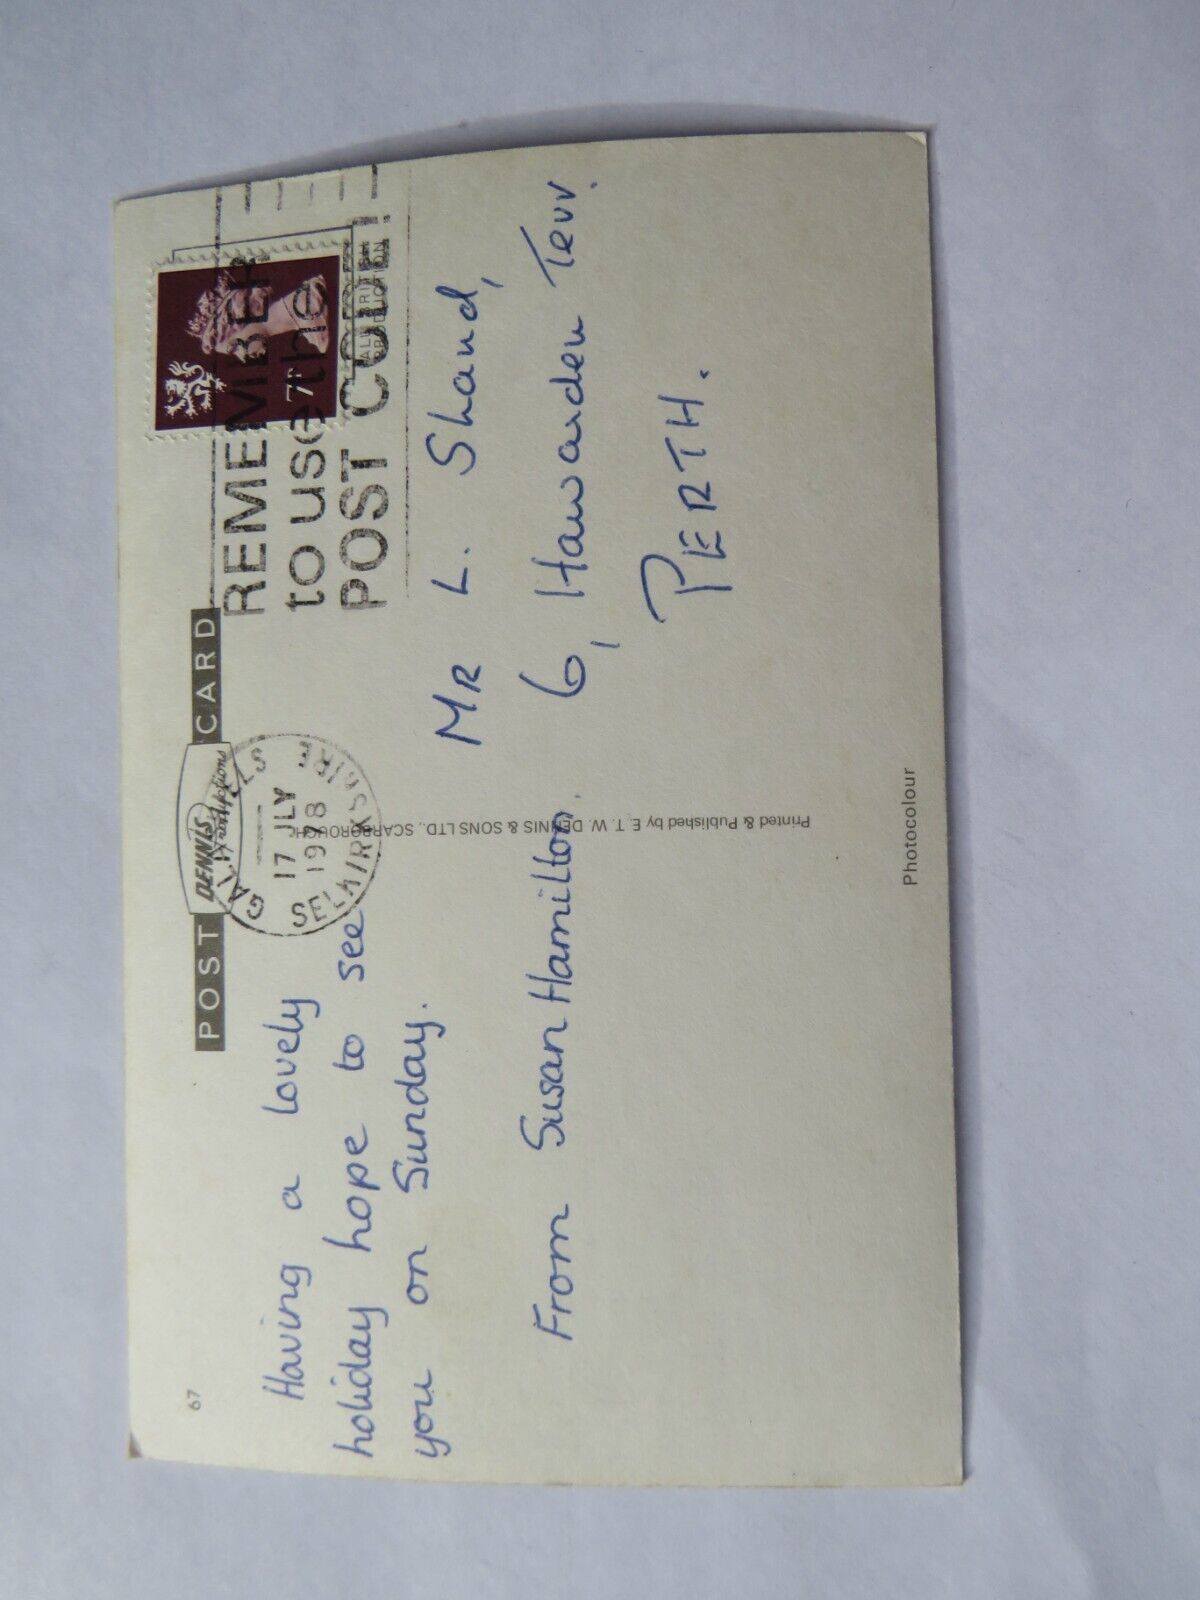 67
POST CARD
DENNIS
Productions
Having a lovely
holiday hope to see
you on Sunday.
From Susan Hamilton.
GALASHIELS
17 JLY
1978
SELKIRKSHIRE
REMEMBER
to use the
POST CODE!
7P
ALL BRITISH
PRODUCTION
MR L. Shand,
6, Hawarden Terr.
PERTH.
Printed & Published by E. T. W. DENNIS & SONS LTD., SCARBOROUGH
Photocolour